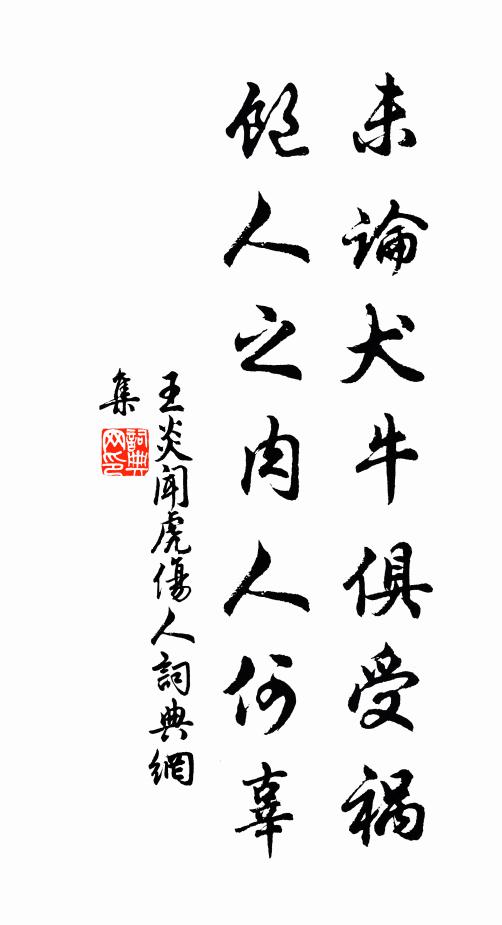 未論犬牛俱受禍
飽人之肉人何辜
王炎聞虎傷人詞典網
集
詞典
网印